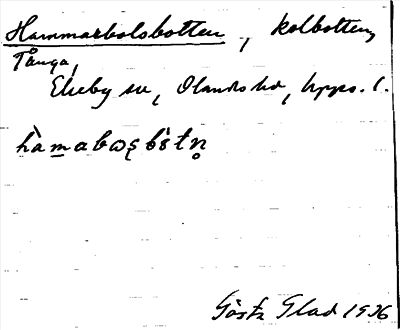 Hammarbolsbotten, kolbotten,
Tånga,
Ekeby sn, Olands hd, Upps. l.
hàmabωʂbότn̥
Gösta Glad 1926